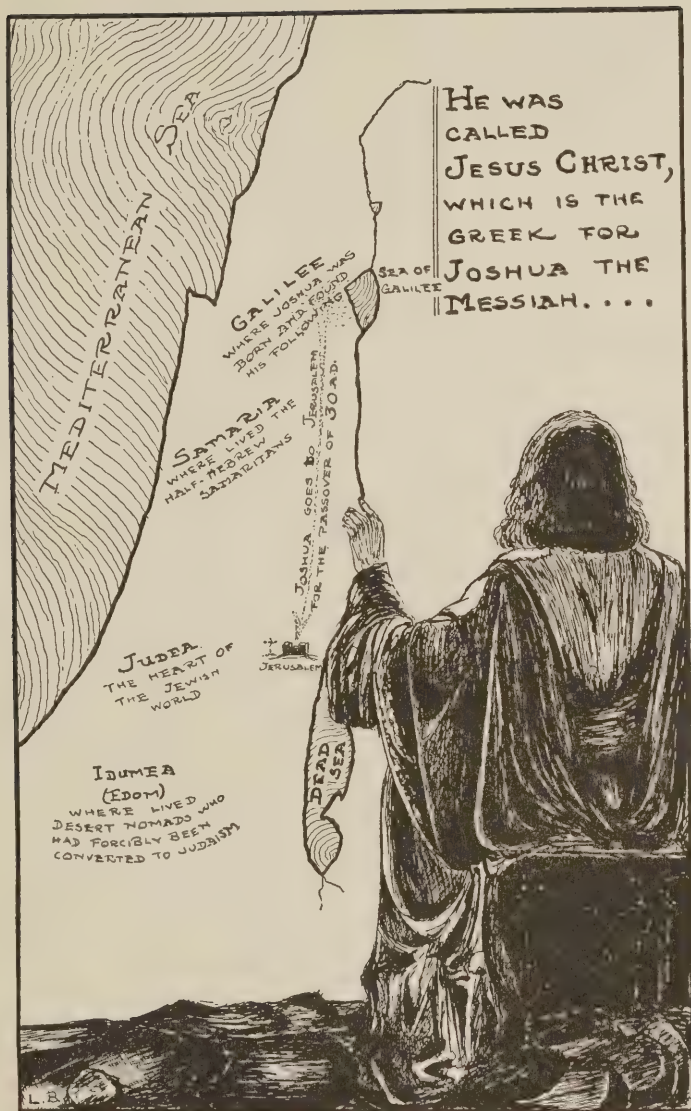 HE WAS
CALLED
JESUS CHRIST,
WHICH IS THE
GREEK FOR
JOSHUA THE
MESSIAH....
MEDITERRANEAN SEA
GALILEE
WHERE JOSHUA WAS
BORN AND FOUND
HIS FOLLOWING
SEA OF
GALILEE
SAMARIA
WHERE LIVED THE
HALF-HEBREW
SAMARITANS
JOSHUA GOES TO JERUSALEM
FOR THE PASSOVER OF 30 A.D.
JUDEA
THE HEART OF
THE JEWISH
WORLD
JERUSALEM
DEAD
SEA
IDUMEA
(EDOM)
WHERE LIVED
DESERT NOMADS WHO
HAD FORCIBLY BEEN
CONVERTED TO JUDAISM
L.B.